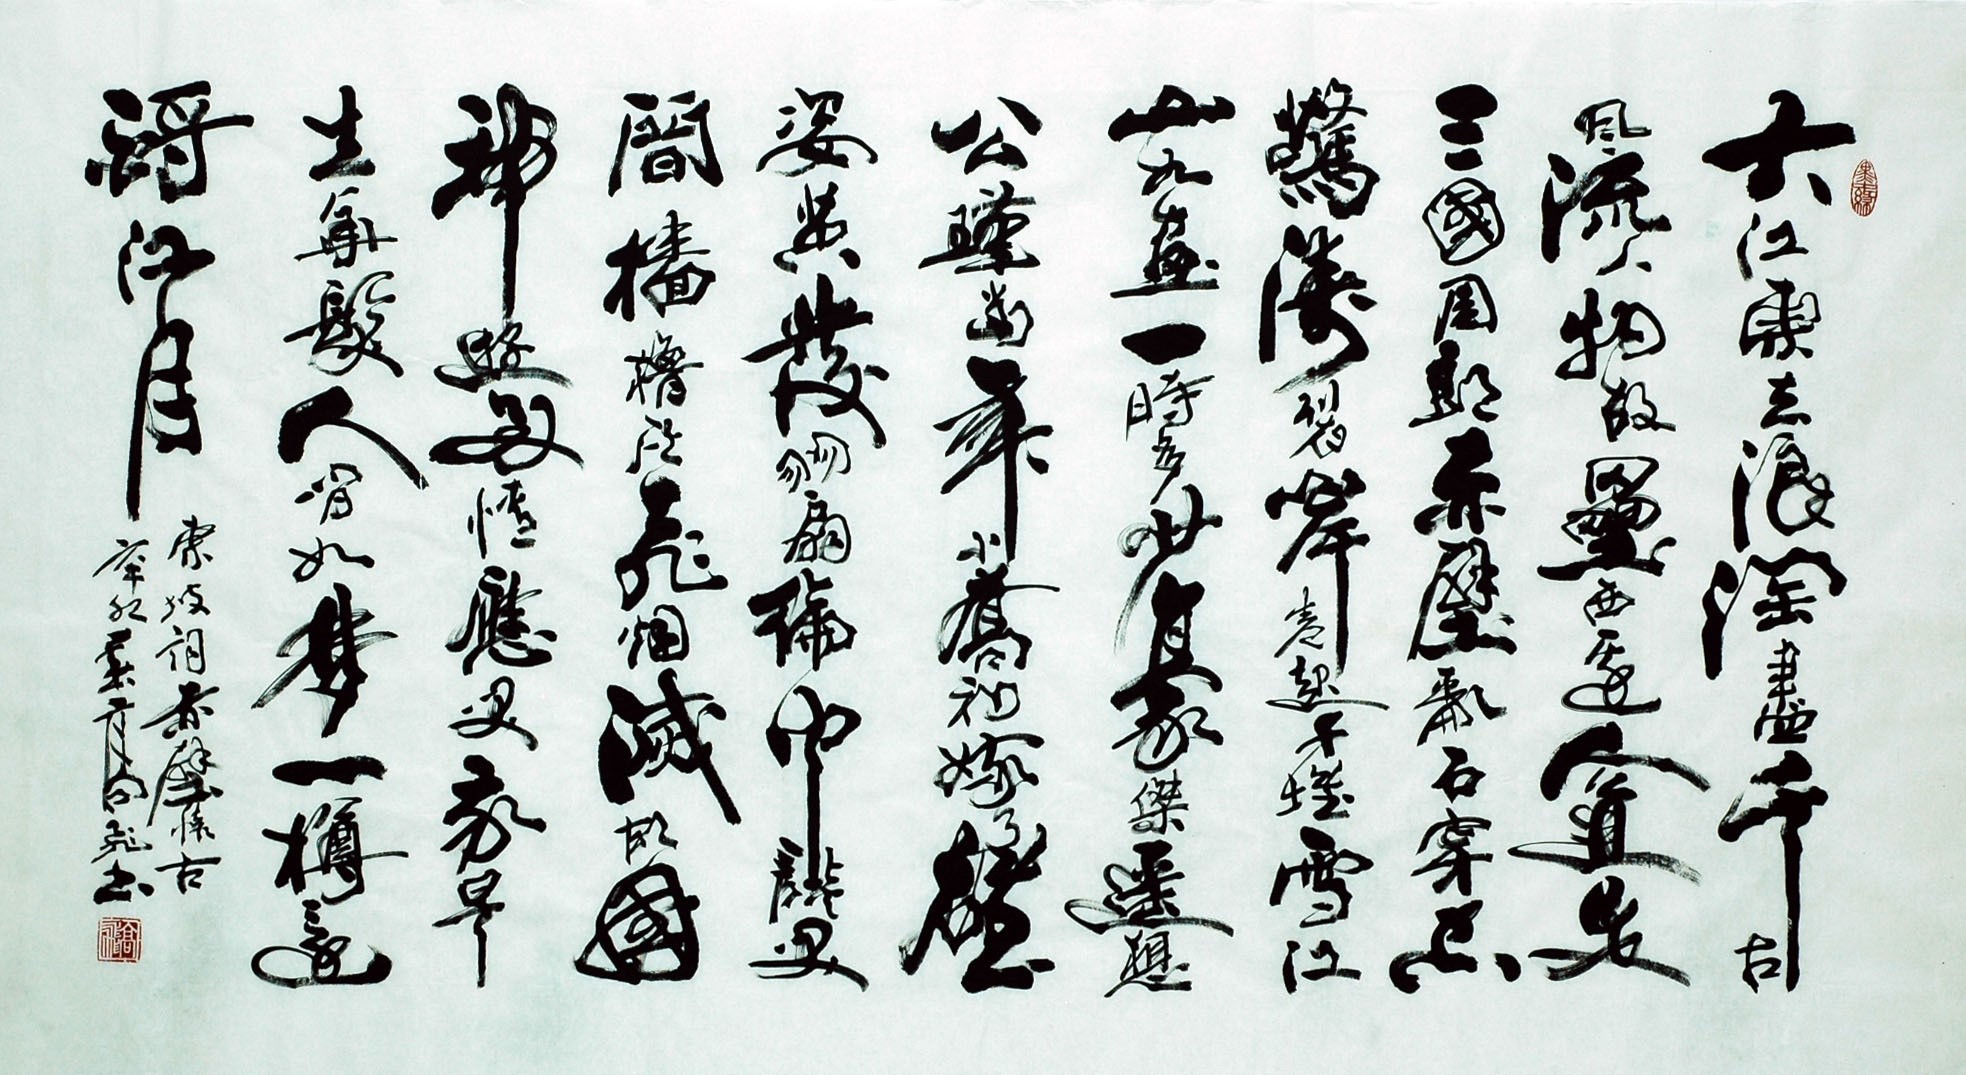 大江東去浪淘盡千古
風流人物故壘西邊人道是
三國周郎赤壁亂石穿空
驚濤裂岸卷起千堆雪江
山如畫一時多少豪傑遙想
公瑾當年小喬初嫁了雄
姿英發羽扇綸巾談笑
間檣櫓灰飛烟滅故國
神遊多情應笑我早
生華髮人間如夢一樽還
酹江月
東坡詞赤壁懷古
辛卯